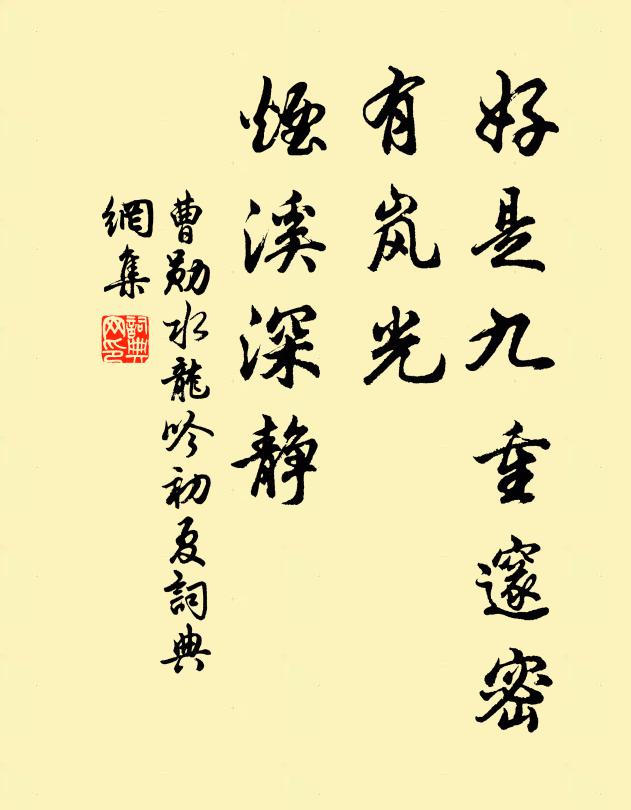 好是九重邃密
有岚光
煙溪深静
曹勛水龍吟初夏詞典
網集
詞典
网印